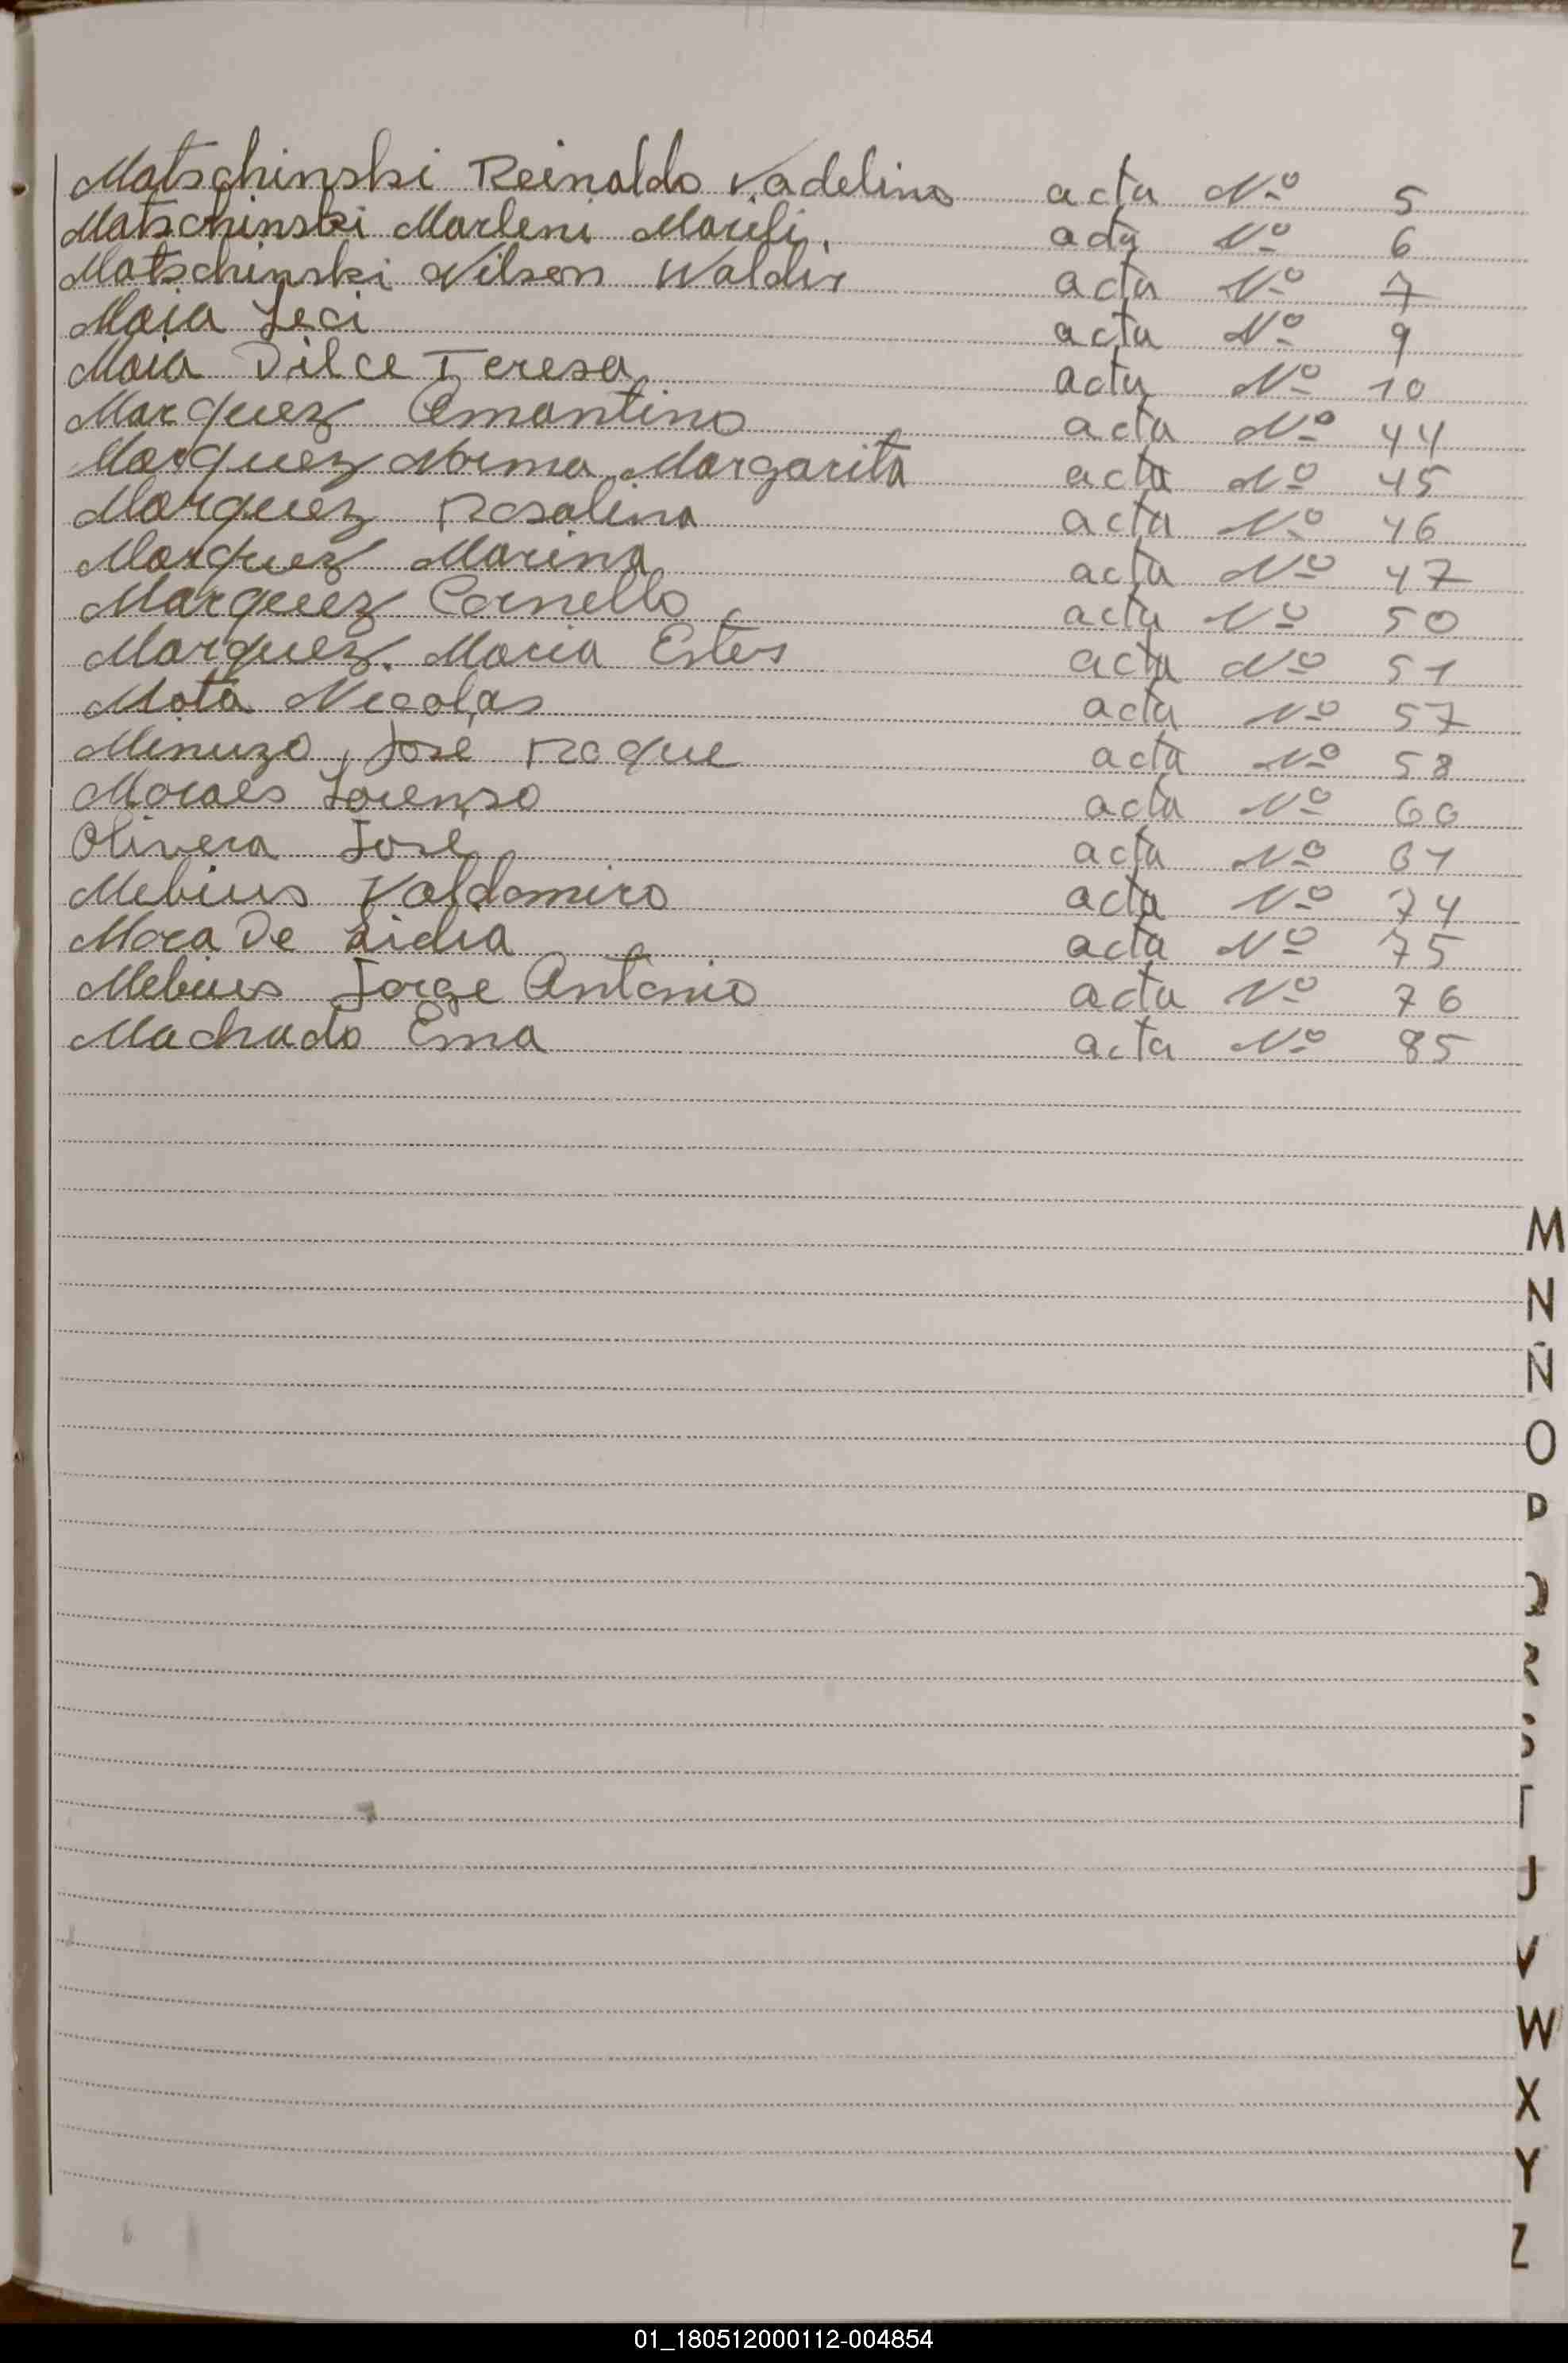 Matschinski Reinaldo Vadelino acta Nº 5
Matschinski Marleni Marili. acta Nº 6
Matschinski Nilson Waldir acta Nº 7
Maia Leci acta Nº 9
Maia Dilce Teresa acta Nº 10
Marquez Amantino acta Nº 44
Marquez Norma Margarita acta Nº 45
Marquez Rosalina acta Nº 46
Marquez Marina acta Nº 47
Marquez Cornello acta Nº 50
Marquez. Maria Ester acta Nº 51
Mota Nicolas acta Nº 57
Minuzo, José Roque acta Nº 58
Moraes Lorenso acta Nº 60
Olivera José acta Nº 61
Mebius Valdomiro acta Nº 74
Mora De Lidia acta Nº 75
Mebius Jorge Antonio acta Nº 76
Machado Ema acta Nº 85
M
N
Ñ
O
P
Q
R
S
T
U
V
W
X
Y
Z
01_180512000112-004854